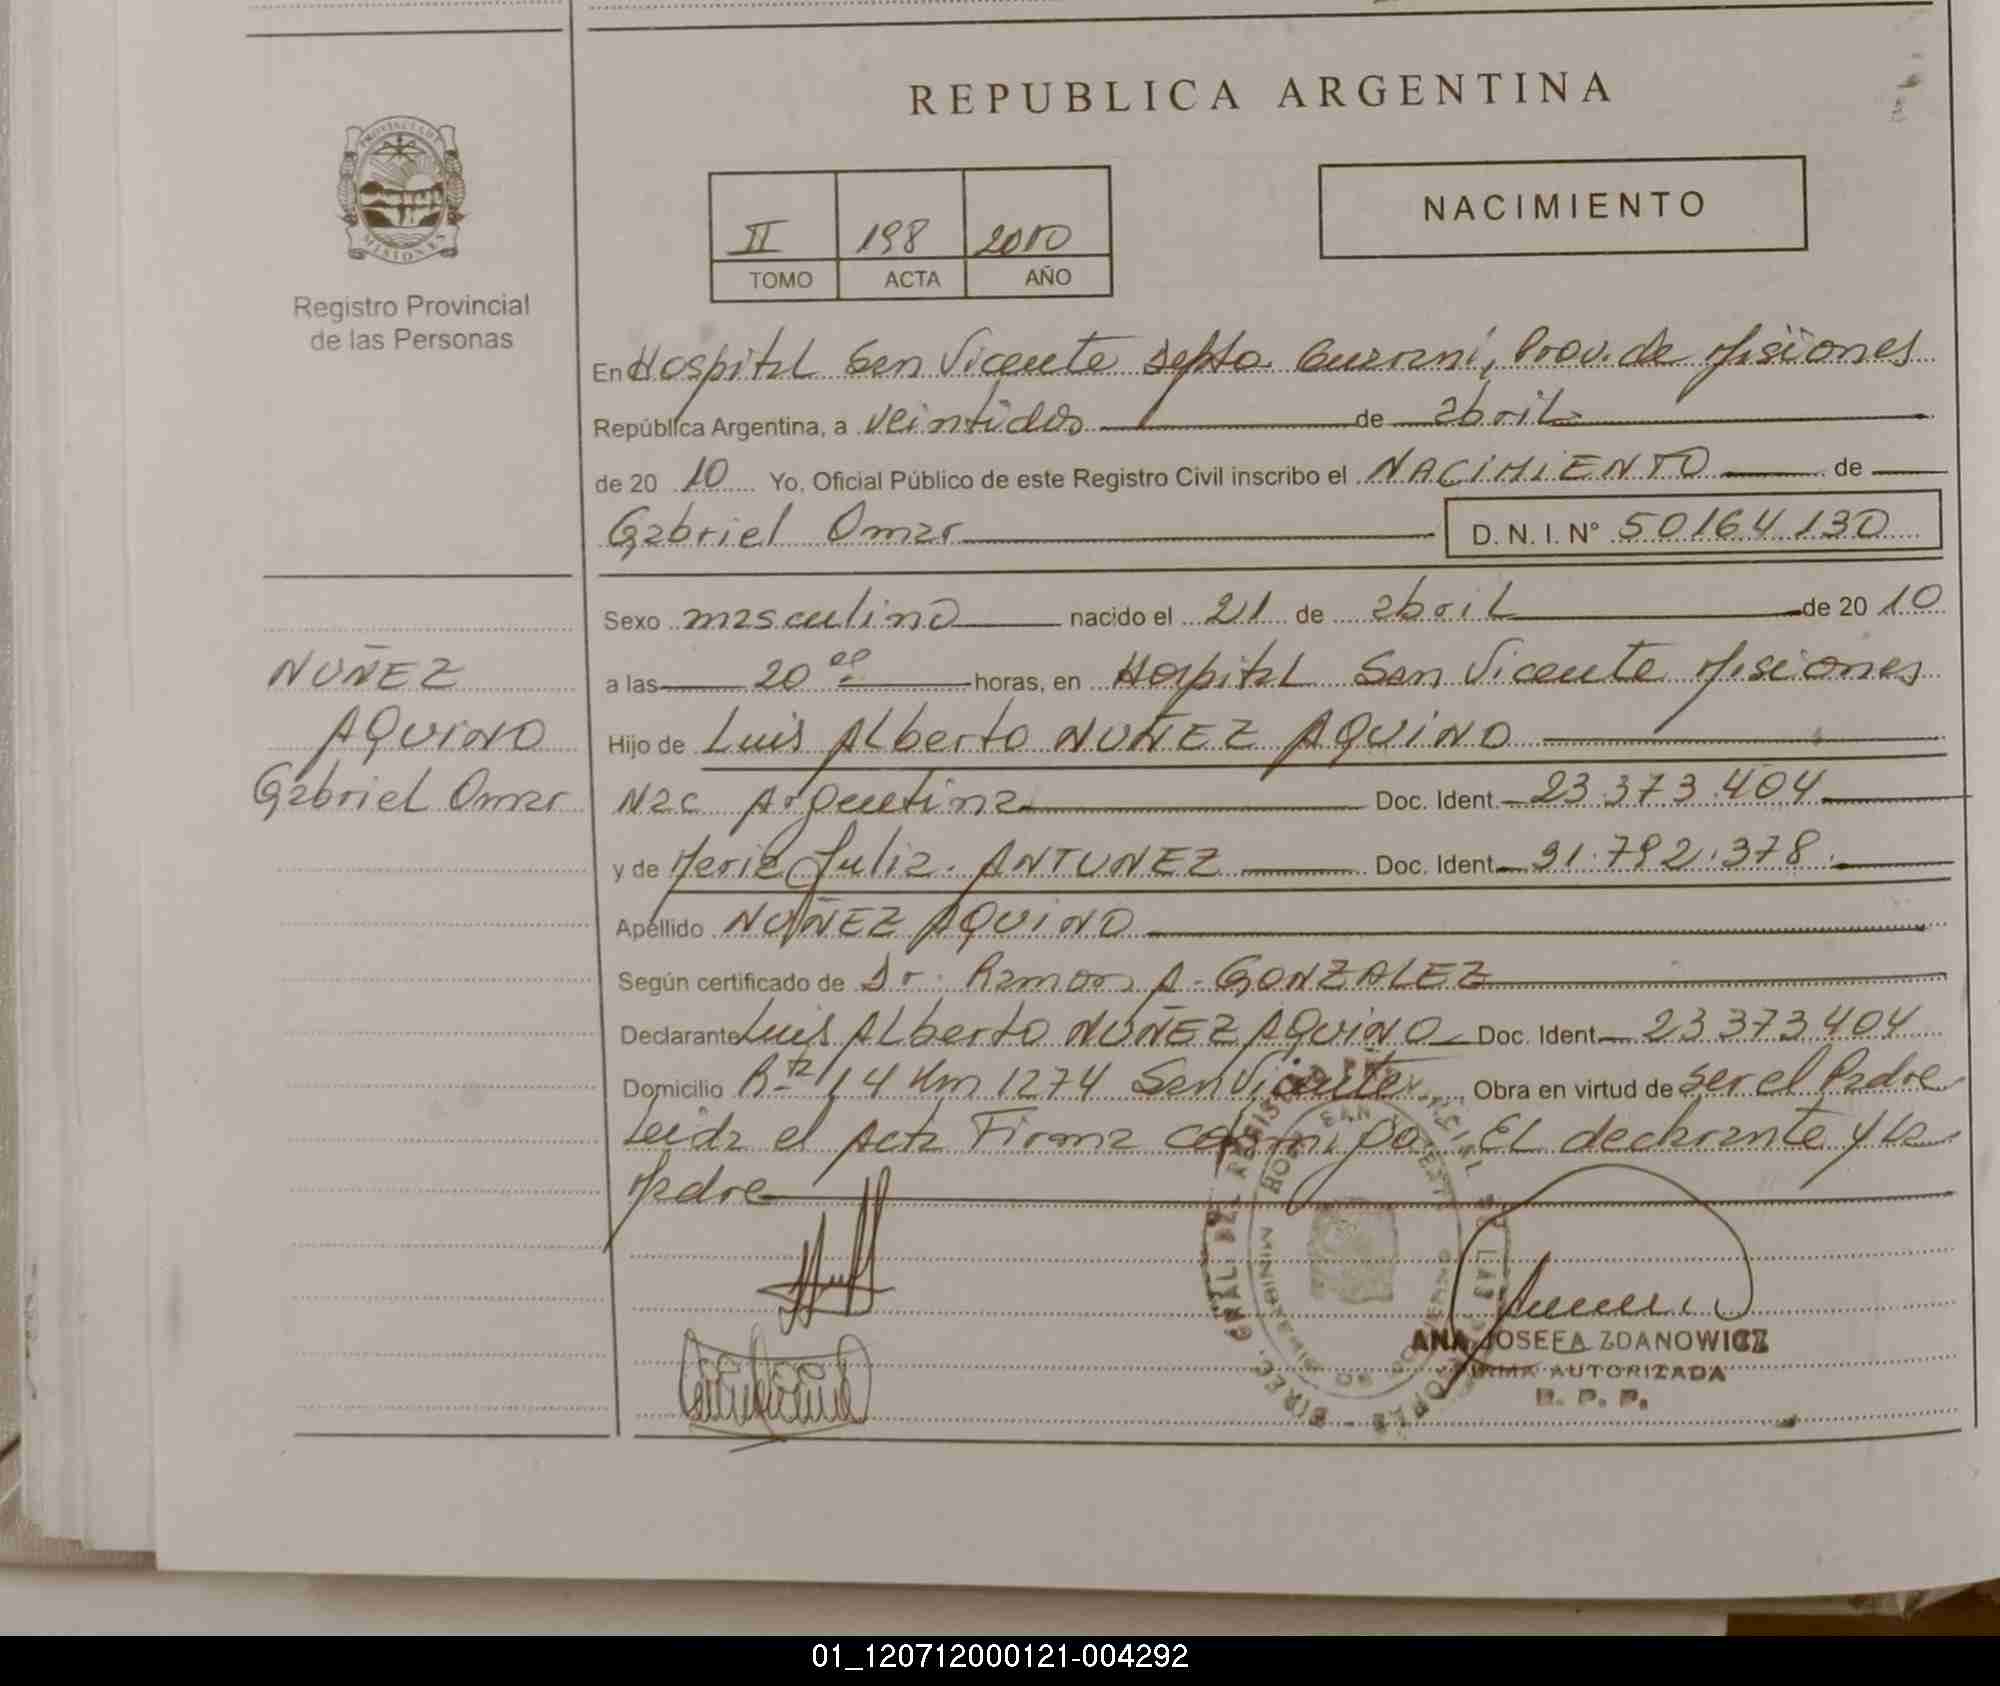 REPUBLICA ARGENTINA
PROVINCIA DE
MISIONES
Registro Provincial
de las Personas
II 198 2010
TOMO ACTA AÑO
NACIMIENTO
En Hospital San Vicente Depto. Guarani, Prov. de Misiones
República Argentina, a veintidos de abril
de 2010 Yo, Oficial Público de este Registro Civil inscribo el NACIMIENTO de
Gabriel Omar D. N. I. N° 50164130
Sexo masculino nacido el 21 de abril de 2010
a las 20 horas, en Hospital San Vicente Misiones
NUÑEZ
AQUINO
Gabriel Omar
Hijo de Luis Alberto NUÑEZ AQUINO
Nac Argentina Doc. Ident. 23.373.404
y de Maria Julia ANTUNEZ Doc. Ident. 31.792.378
Apellido NUÑEZ AQUINO
Según certificado de Dr. Ramon A. GONZALEZ
Declarante Luis Alberto NUÑEZ AQUINO Doc. Ident. 23373404
Domicilio Rta 14 Km 1274 San Vicente Obra en virtud de ser el Padre
Leida el Acta Firma conmigo. EL declarante y la
Madre
ANA JOSEFA ZDANOWICZ
FIRMA AUTORIZADA
R. P. P.
01_120712000121-004292